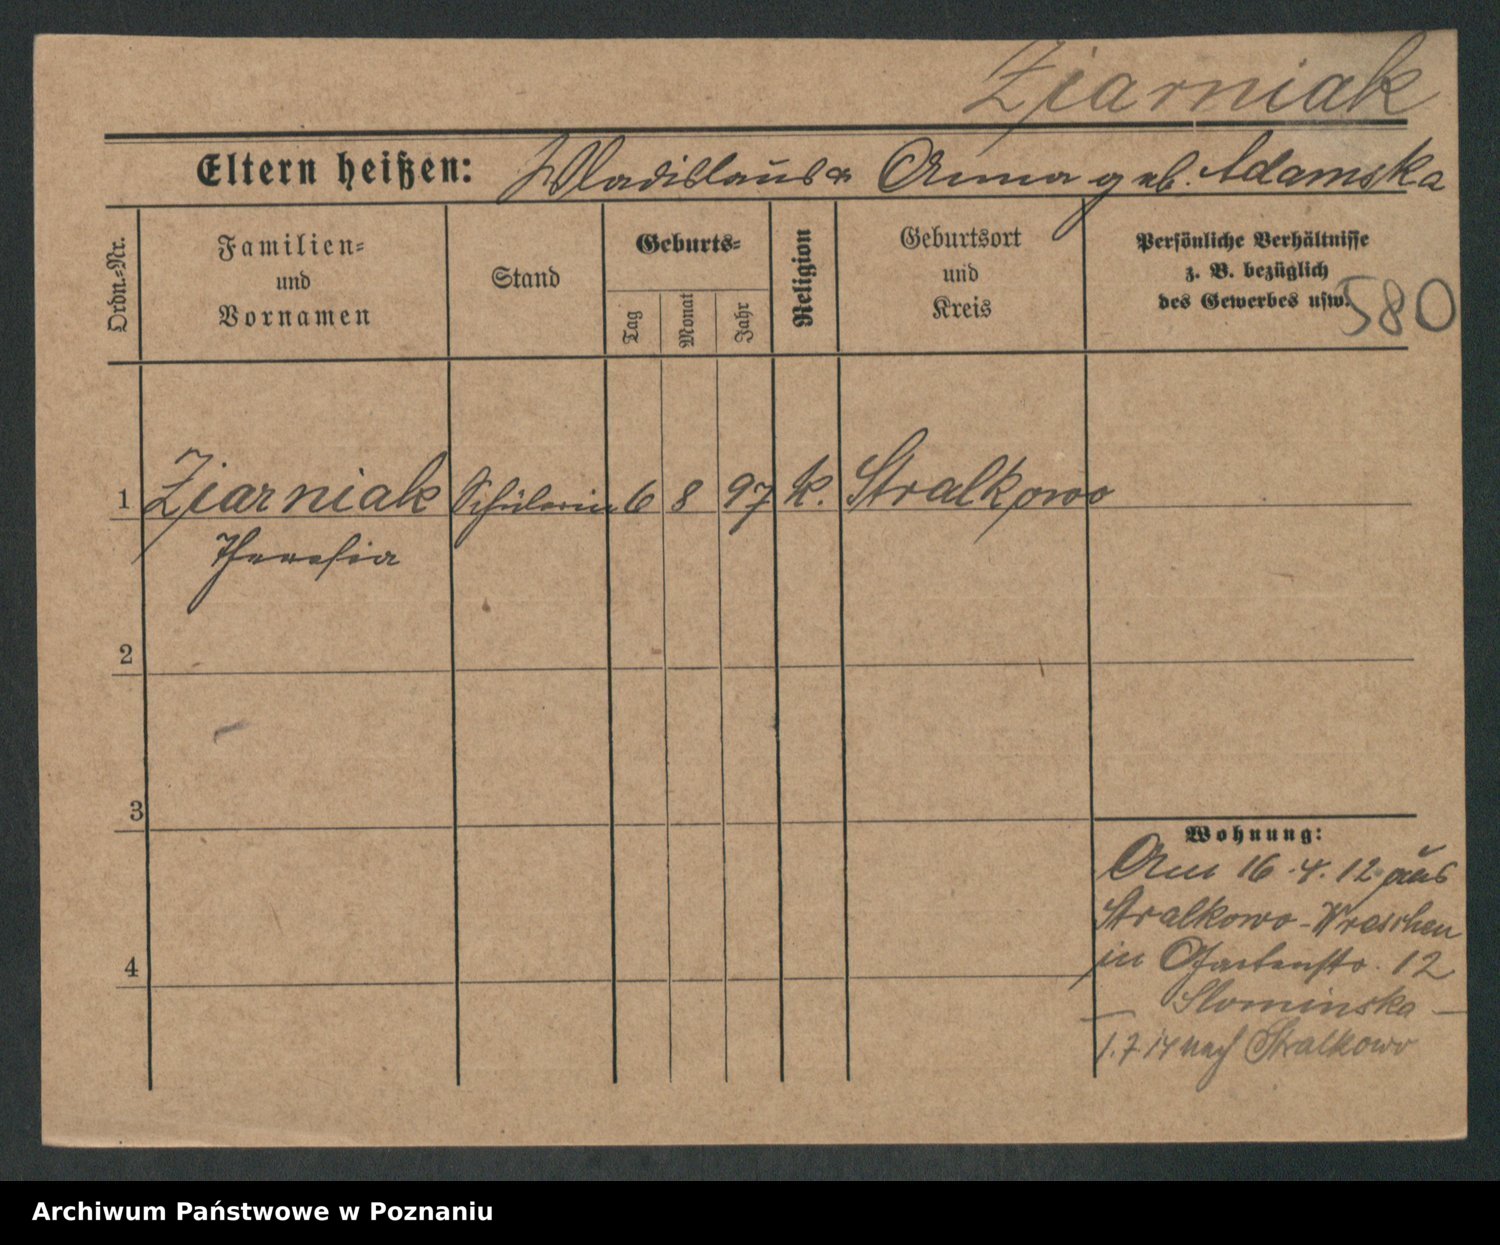 Ziarniak
Eltern heißen: Wladislaus & Anna geb. Adamska
Ordn.-Nr.
Familien-
und
Vornamen
Stand
Geburts-
Tag
Monat
Jahr
Religion
Geburtsort
und
Kreis
Persönliche Verhältnisse
z. B. bezüglich
des Gewerbes usw.
580
1 Ziarniak Schülerin 6 8 97 k. Stralkowo
Theresia
2
3
4
Wohnung:
Am 16.4.12 aus
Stralkowo-Wreschen
in Gartenstr. 12
Slominska
1.7.14 nach Stralkowo
Archiwum Państwowe w Poznaniu